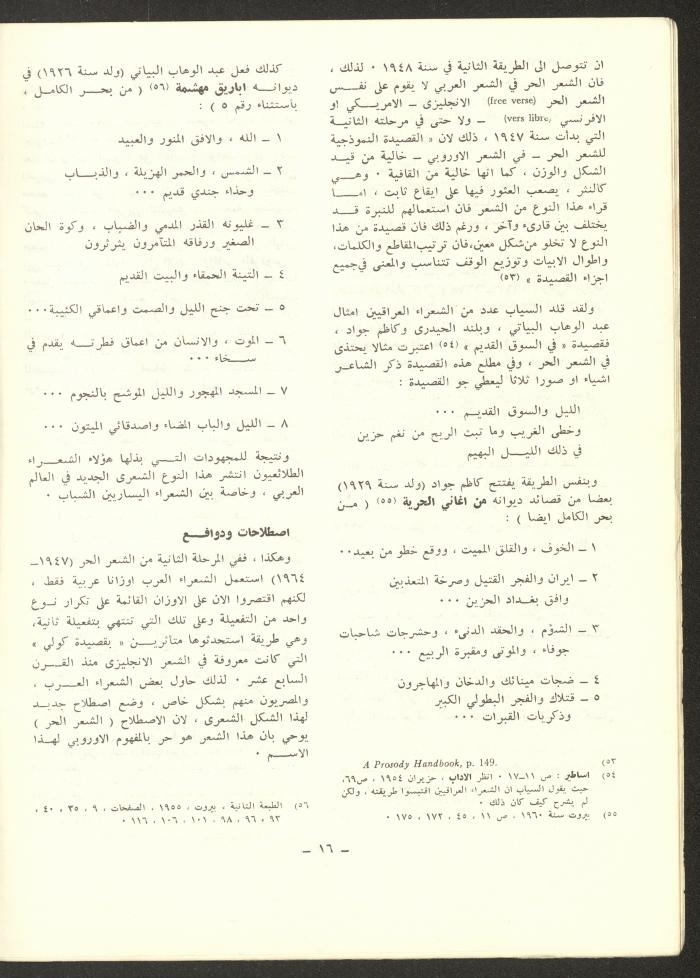 ان تتوصل الى الطريقة الثانية في سنة ١٩٤٨ ٠ لذلك ،
فان الشعر الحر في الشعر العربي لا يقوم على نفـــس
الشعر الحر (free verse) الانجليزى – الامريـــكي او
الافرنسي (vers libre) – ولا حتى في مرحلته الثانيــة
التي بدأت سنة ١٩٤٧ ، ذلك لان « القصيدة النموذجية
للشعر الحر – في الشعر الاوروبي – خالية من قيــد
الشكل والوزن ، كما انها خالية من القافية ٠ وهـــي
كالنثر ، يصعب العثور فيها على ايقاع ثابت ، امـــا
قراء هذا النوع من الشعر فان استعمالهم للنبرة قـــد
يختلف بين قارىء وآخر ، ورغم ذلك فان قصيدة من هذا
النوع لا تخلو من شكل معين، فان ترتيب المقاطع والكلمات،
واطوال الابيات وتوزيع الوقف تتناسب والمعنى في جميع
اجزاء القصيدة » (٥٣)
ولقد قلد السياب عدد من الشعراء العراقيين امثال
عبد الوهاب البياتي ، وبلند الحيدرى وكاظم جواد ،
فقصيدة « في السوق القديم » (٥٤) اعتبرت مثالا يحتذى
في الشعر الحر ، وفي مطلع هذه القصيدة ذكر الشاعــر
اشياء او صورا ثلاثا ليعطي جو القصيدة :
الليل والسوق القديــم ٠٠٠
وخطى الغريب وما تبث الريح من نغم حزين
في ذلك الليـــل البهيم
وبنفس الطريقة يفتتح كاظم جواد (ولد سنة ١٩٢٩)
بعضا من قصائد ديوانه من اغاني الحرية (٥٥) ( مــن
بحر الكامل ايضا ) :
١ – الخوف ، والقلق المميت ، ووقع خطو من بعيد٠٠
٢ – ايران والفجر القتيل وصرخة المتعذبين
وافق بغــداد الحزين ٠٠٠
٣ – الشؤم ، والحقد الدنىء ، وحشرجات شاحبات
جوفاء ، والموتى ومقبرة الربيع ٠٠٠
٤ – ضجات مينائك والدخان والمهاجرون
٥ – قتلاك والفجر البطولي الكبير
وذكريات القبرات ٠٠٠
(٥٣ A Prosody Handbook, p. 149.
(٥٤ اساطير : ص ١١–١٧ ٠ انظر الآداب ، حزيران ١٩٥٤ ، ص٦٩،
حيث يقول السياب ان الشعراء العراقيين اقتبسوا طريقته ، ولكن
لم يشرح كيف كان ذلك ٠
(٥٥ بيروت سنة ١٩٦٠ ، ص ١١ ، ٤٥ ، ١٧٢ ، ١٧٥ ٠
كذلك فعل عبد الوهاب البياتي (ولد سنة ١٩٢٦) في
ديوانـــه اباريق مهشمة (٥٦) ( من بحــر الكامل ،
باستثناء رقم ٥ ) :
١ – الله ، والافق المنور والعبيد
٢ – الشمس ، والحمر الهزيلة ، والذبـــاب
وحذاء جندي قديم ٠٠٠
٣ – غليونه القذر المدمي والضباب ، وكوة الحان
الصغير ورفاقه المتآمرون يثرثرون
٤ – التينة الحمقاء والبيت القديم
٥ – تحت جنح الليل والصمت واعماقي الكئيبة٠٠٠
٦ – الموت ، والانسان من اعماق فطرتـــه يقدم في
ســـخاء ٠٠٠
٧ – المسجد المهجور والليل الموشح بالنجوم ٠٠٠
٨ – الليل والباب المضاء واصدقائي الميتون ٠٠٠
ونتيجة للمجهودات التـــي بذلها هؤلاء الشعـــراء
الطلائعيون انتشر هذا النوع الشعرى الجديد في العالم
العربي ، وخاصة بين الشعراء اليساريين الشباب ٠
اصطلاحات ودوافـــع
وهكذا ، ففي المرحلة الثانية من الشعر الحر (١٩٤٧–
١٩٦٤) استعمل الشعراء العرب اوزانا عربية فقط ،
لكنهم اقتصروا الان على الاوزان القائمة على تكرار نــوع
واحد من التفعيلة وعلى تلك التي تنتهي بتفعيلة ثانية،
وهي طريقة استحدثوها متأثريــن « بقصيدة كولي »
التي كانت معروفة في الشعر الانجليزى منذ القــرن
السابع عشر ٠ لذلك حاول بعض الشعراء العـــرب ،
والمصريون منهم بشكل خاص ، وضع اصطلاح جديــد
لهذا الشكل الشعرى ، لان الاصطلاح ( الشعر الحر )
يوحي بأن هذا الشعر هو حر بالمفهوم الاوروبي لهــذا
الاســـم ٠
(٥٦ الطبعة الثانية ، بيروت ، ١٩٥٥ ، الصفحات ، ٩ ، ٣٥ ، ٤٠ ،
٩٣ ، ٩٦ ، ٩٨ ، ١٠١ ، ١٠٦ ، ١١٦ ٠
– ١٦ –